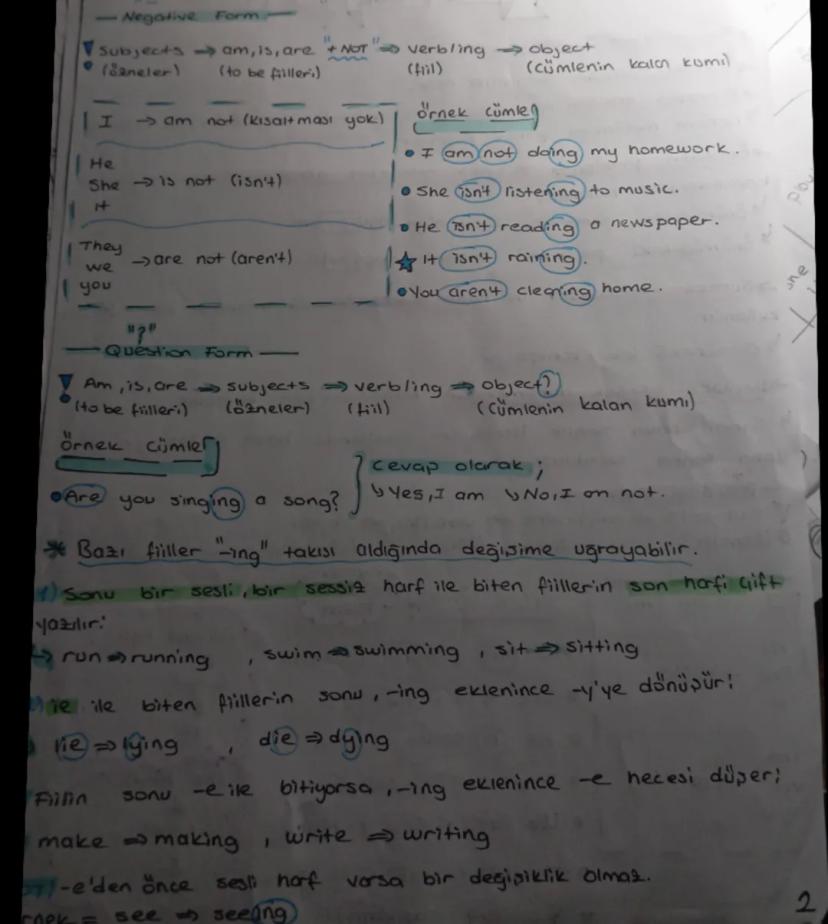 — Negative Form —
! Subjects → am, is, are "+ NOT" ⇒ verbling → object
(özneler) (to be fiilleri) (fiil) (cümlenin kalan kısmı)
I → am not (kısaltması yok)
He
She → is not (isn't)
it
They
we → are not (aren't)
you
örnek cümle
• I am not doing my homework.
• She isn't listening to music.
• He isn't reading a newspaper.
★ It isn't raining.
• You aren't cleaning home.
"?"
— Question Form —
! Am, is, are ⇒ subjects ⇒ verbling ⇒ object?
(to be fiilleri) (özneler) (fiil) (cümlenin kalan kısmı)
örnek cümle
• Are you singing a song?
cevap olarak;
↳ Yes, I am ↳ No, I am not.
* Bazı fiiller "-ing" takısı aldığında değişime uğrayabilir.
1) Sonu bir sesli, bir sessiz harf ile biten fiillerin son harfi çift
yazılır:
→ run ⇒ running , swim ⇒ swimming , sit ⇒ sitting
ie ile biten fiillerin sonu, -ing eklenince -y'ye dönüşür:
lie ⇒ lying , die ⇒ dying
Fiilin sonu -e ile bitiyorsa, -ing eklenince -e hecesi düşer:
make ⇒ making , write ⇒ writing
-e'den önce sesli harf varsa bir değişiklik olmaz.
see ⇒ seeing
2